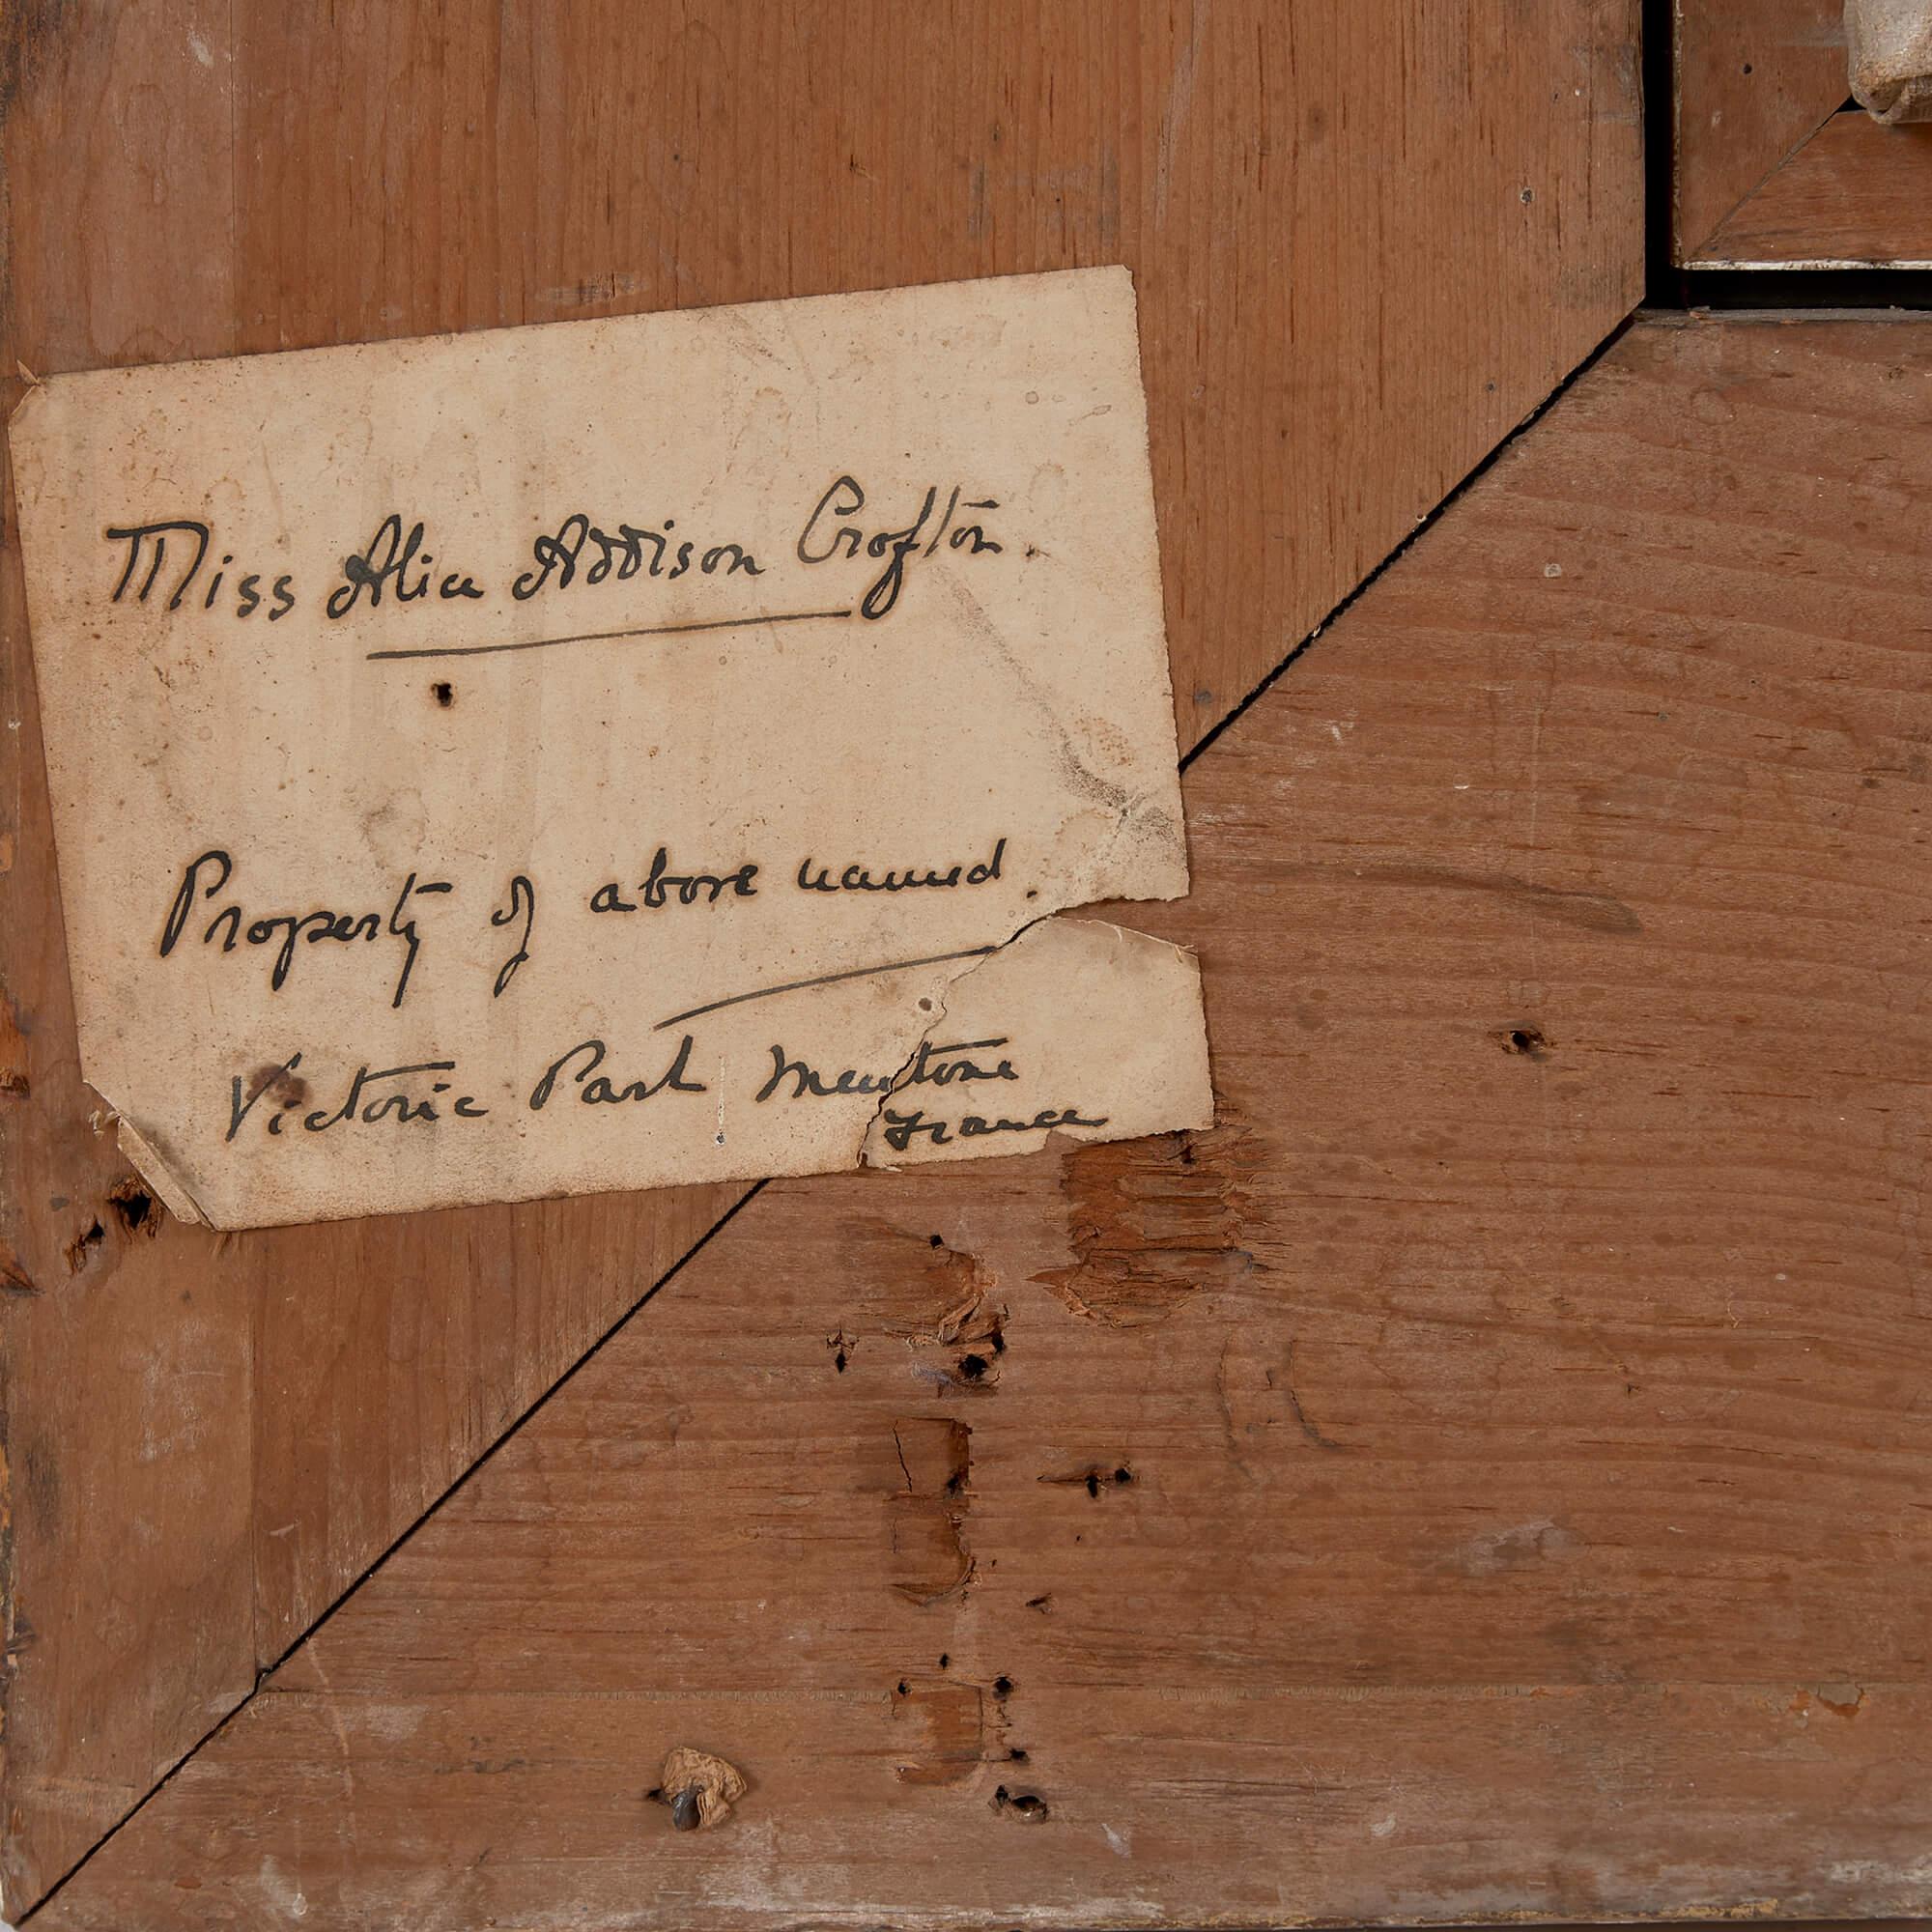 Miss Alice Addison Crofton.
Property of above named.
Victoria Park Mentone
France